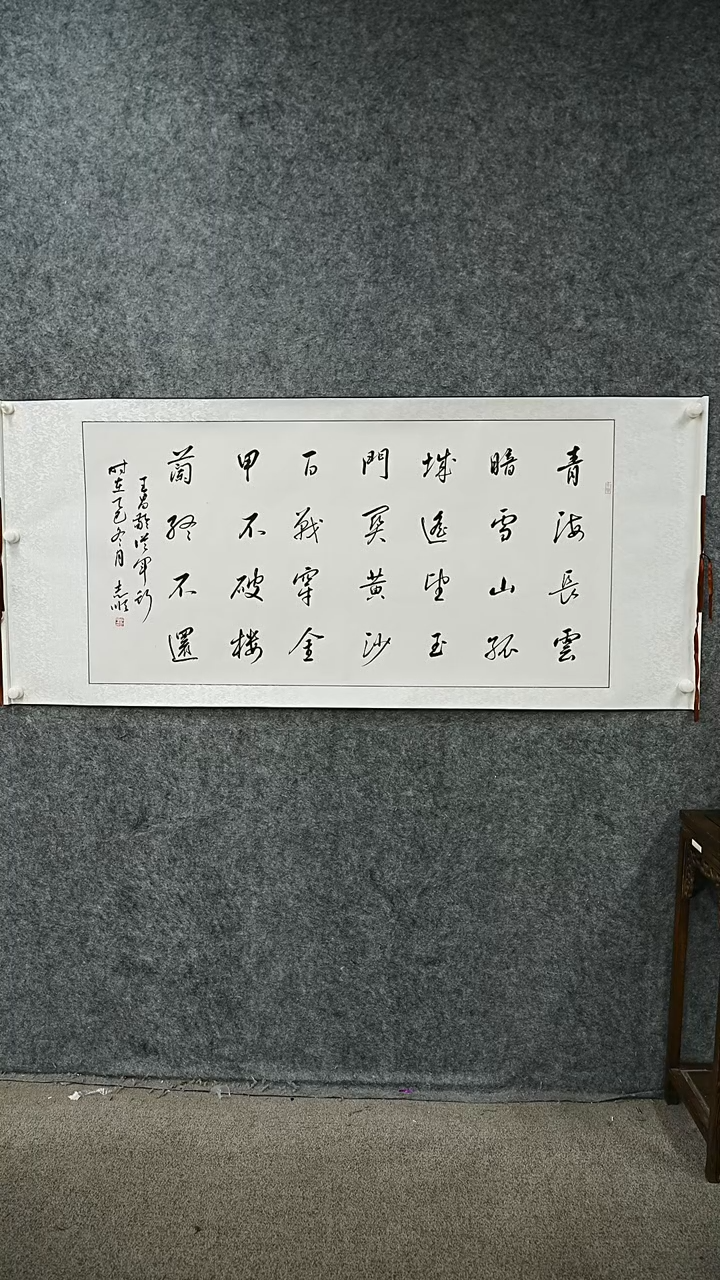 青海長雲
暗雪山孤
城遙望玉
門関黄沙
百戰穿金
甲不破楼
蘭終不還
王昌齡從軍行
时在乙巳冬月 志順